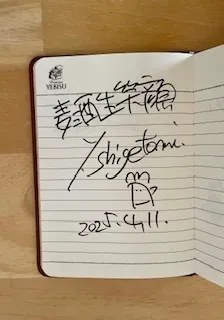 YEBISU
麦酒生笑顔
Shigetomi.
2025.4.11.